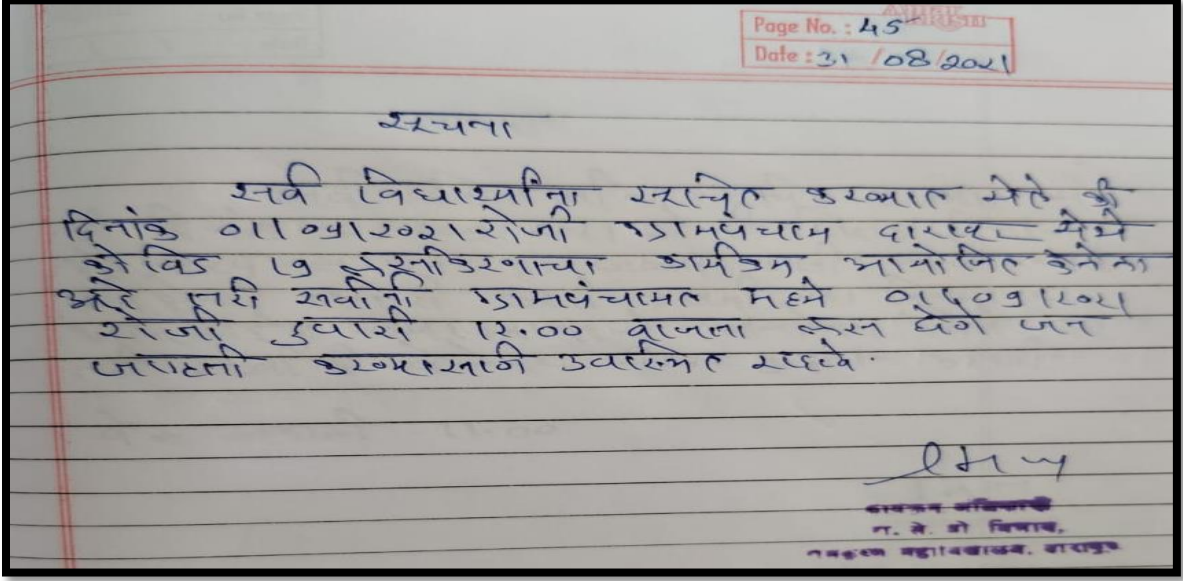 Page No. : 45
Date : 31 /08/2021
सूचना
सर्व विद्यार्थ्यांना सूचित करण्यात येते की
दिनांक ०१/०९/२०२१ रोजी ग्रामपंचायत येथे
कोविड 19 लसीकरणाचा कार्यक्रम आयोजित केलेला
आहे तरी सर्वांनी ग्रामपंचायत मध्ये
रोजी दुपारी १२.०० वाजता लस घेणे जन
जागृती करण्यासाठी उपस्थित राहावे.
कार्यक्रम अधिकारी
रा. से. यो विभाग,
महाविद्यालय,